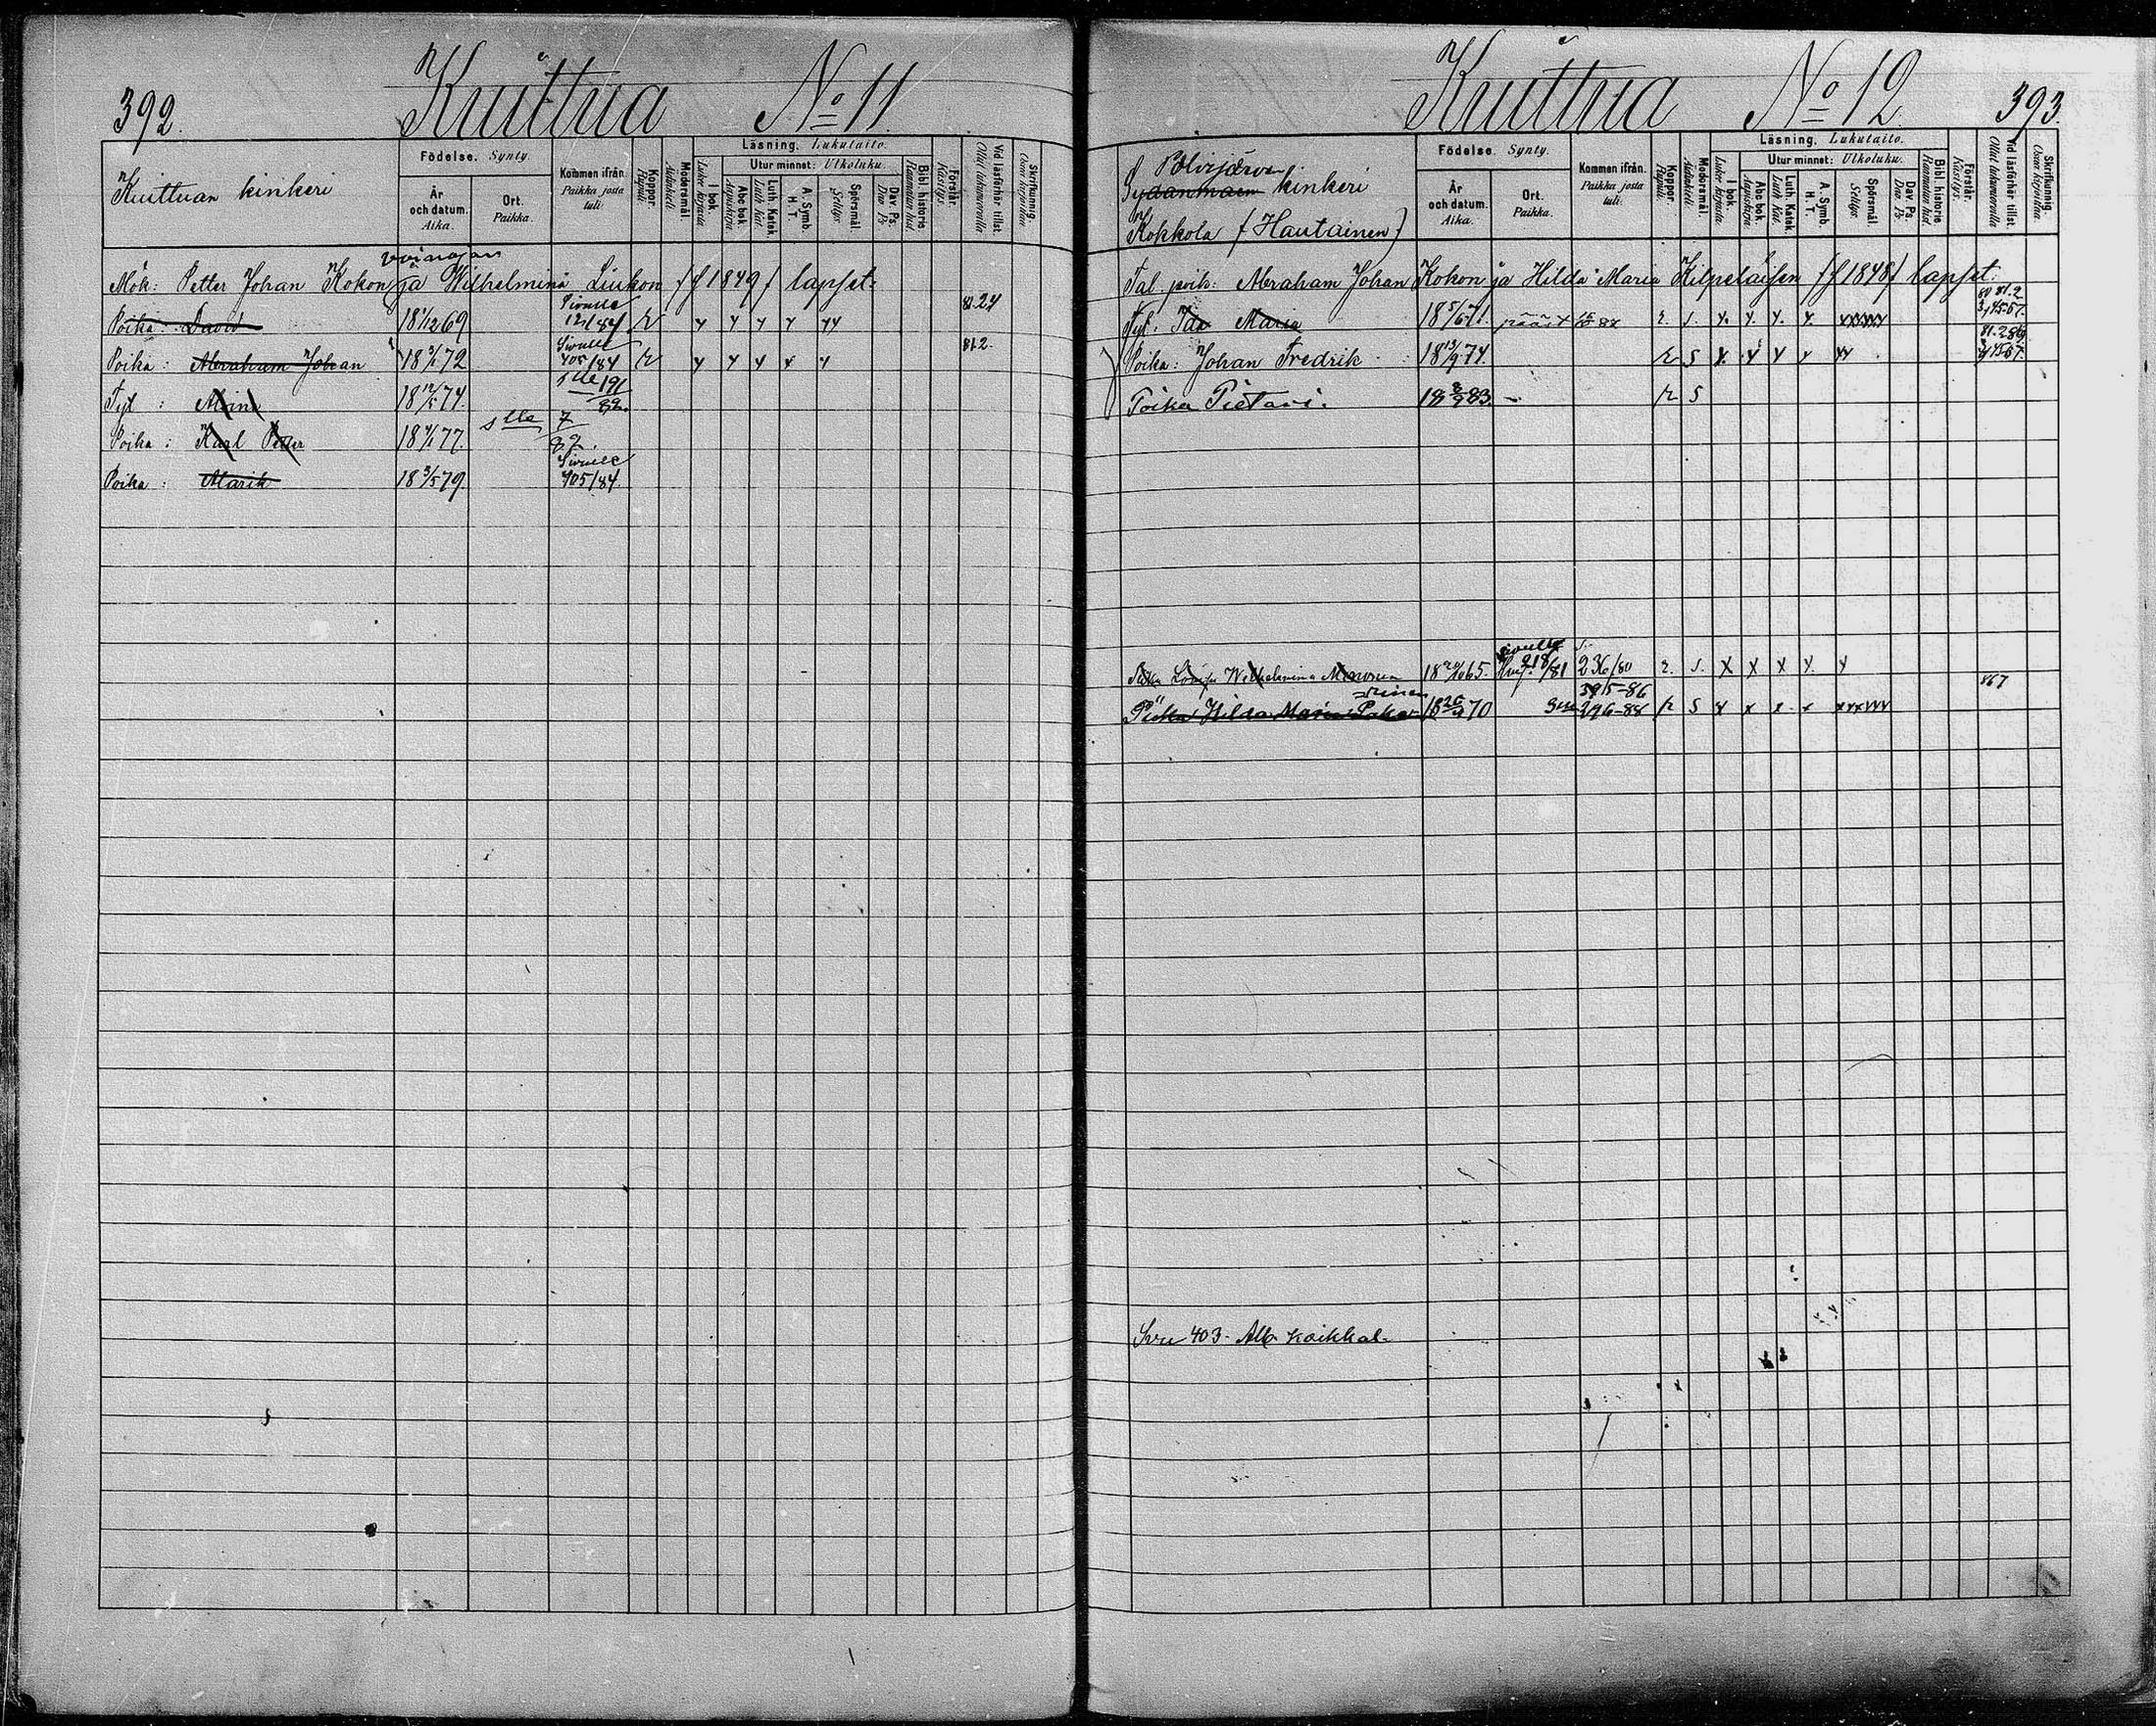 392. Kuittua No 11.
Kuittuan kinkeri
Födelse. Synty.
År och datum. Aika.
Ort. Paikka.
Kommen ifrån. Paikka josta tuli.
Koppor. Rupuli.
Modersmål. Äidinkieli
Läsning. Lukutaito.
I bok. Lukee kirjasta
Utur minnet: Ulkoluku.
Abc bok. Aapiskirja.
Luth. Katek. Luth. Kat.
A. Symb. H. T.
Spörsmål. Selitys.
Dav. Ps. Dav. Ps.
Bibl. historie. Raamatun hist.
Förstår. Käsitys.
Vid läsförhör tillst. Ollut lukuvuorolla
Skrifkunnig. Osaa kirjoittaa.
Mök: Petter Johan Kokon ja Wilhelmina Liukon /f 1849/ lapset:
Poika: David 18 1/12 69 Sivulle 121/84 r y y y y yy 80.24
Poika: Abraham Johan 18 3/1 72 Sivulle 405/84 r y y y x y 81.2.
Tyt: Alvina 74. slle 191/82.
Poika: Karl Petter 77. slle 7/82.
Poika: Marik 18 3/5 79. Sivulle 405/84.
Kuittua No 12. 393.
Polvijärven
Sydänmaan kinkeri
Kokkola /Hautainen/
Födelse. Synty.
År och datum. Aika.
Ort. Paikka.
Kommen ifrån. Paikka josta tuli.
Koppor. Rupuli.
Modersmål. Äidinkieli.
Läsning. Lukutaito.
I bok. Lukee kirjasta
Utur minnet: Ulkoluku.
Abc bok. Aapiskirja.
Luth. Katek. Luth. Kat.
A. Symb. H. T.
Spörsmål. Selitys.
Dav. Ps. Dav. Ps.
Bibl. historie. Raamatun hist.
Förstår. Käsitys.
Vid läsförhör tillst. Ollut lukuvuorolla
Skrifkunnig. Osaa kirjoittaa.
Tal. poik: Abraham Johan Kokon ja Hilda Maria Kilpeläisen /f 1848/ lapset.
Tyt. Ida Maria 18 5/6 71. r. s. y. y. y. y.
Poika: Johan Fredrik 18 13/9 74. r s y. y y y yy
Poika Pietari. 83. r s
Piika Lovisa Wilhelmina 65. sivulle 218/81 236/80 r. s. x x x y. y
Piika Hilda Maria 70 395-86 396-88 r s y x x x 867
Sivu 403.